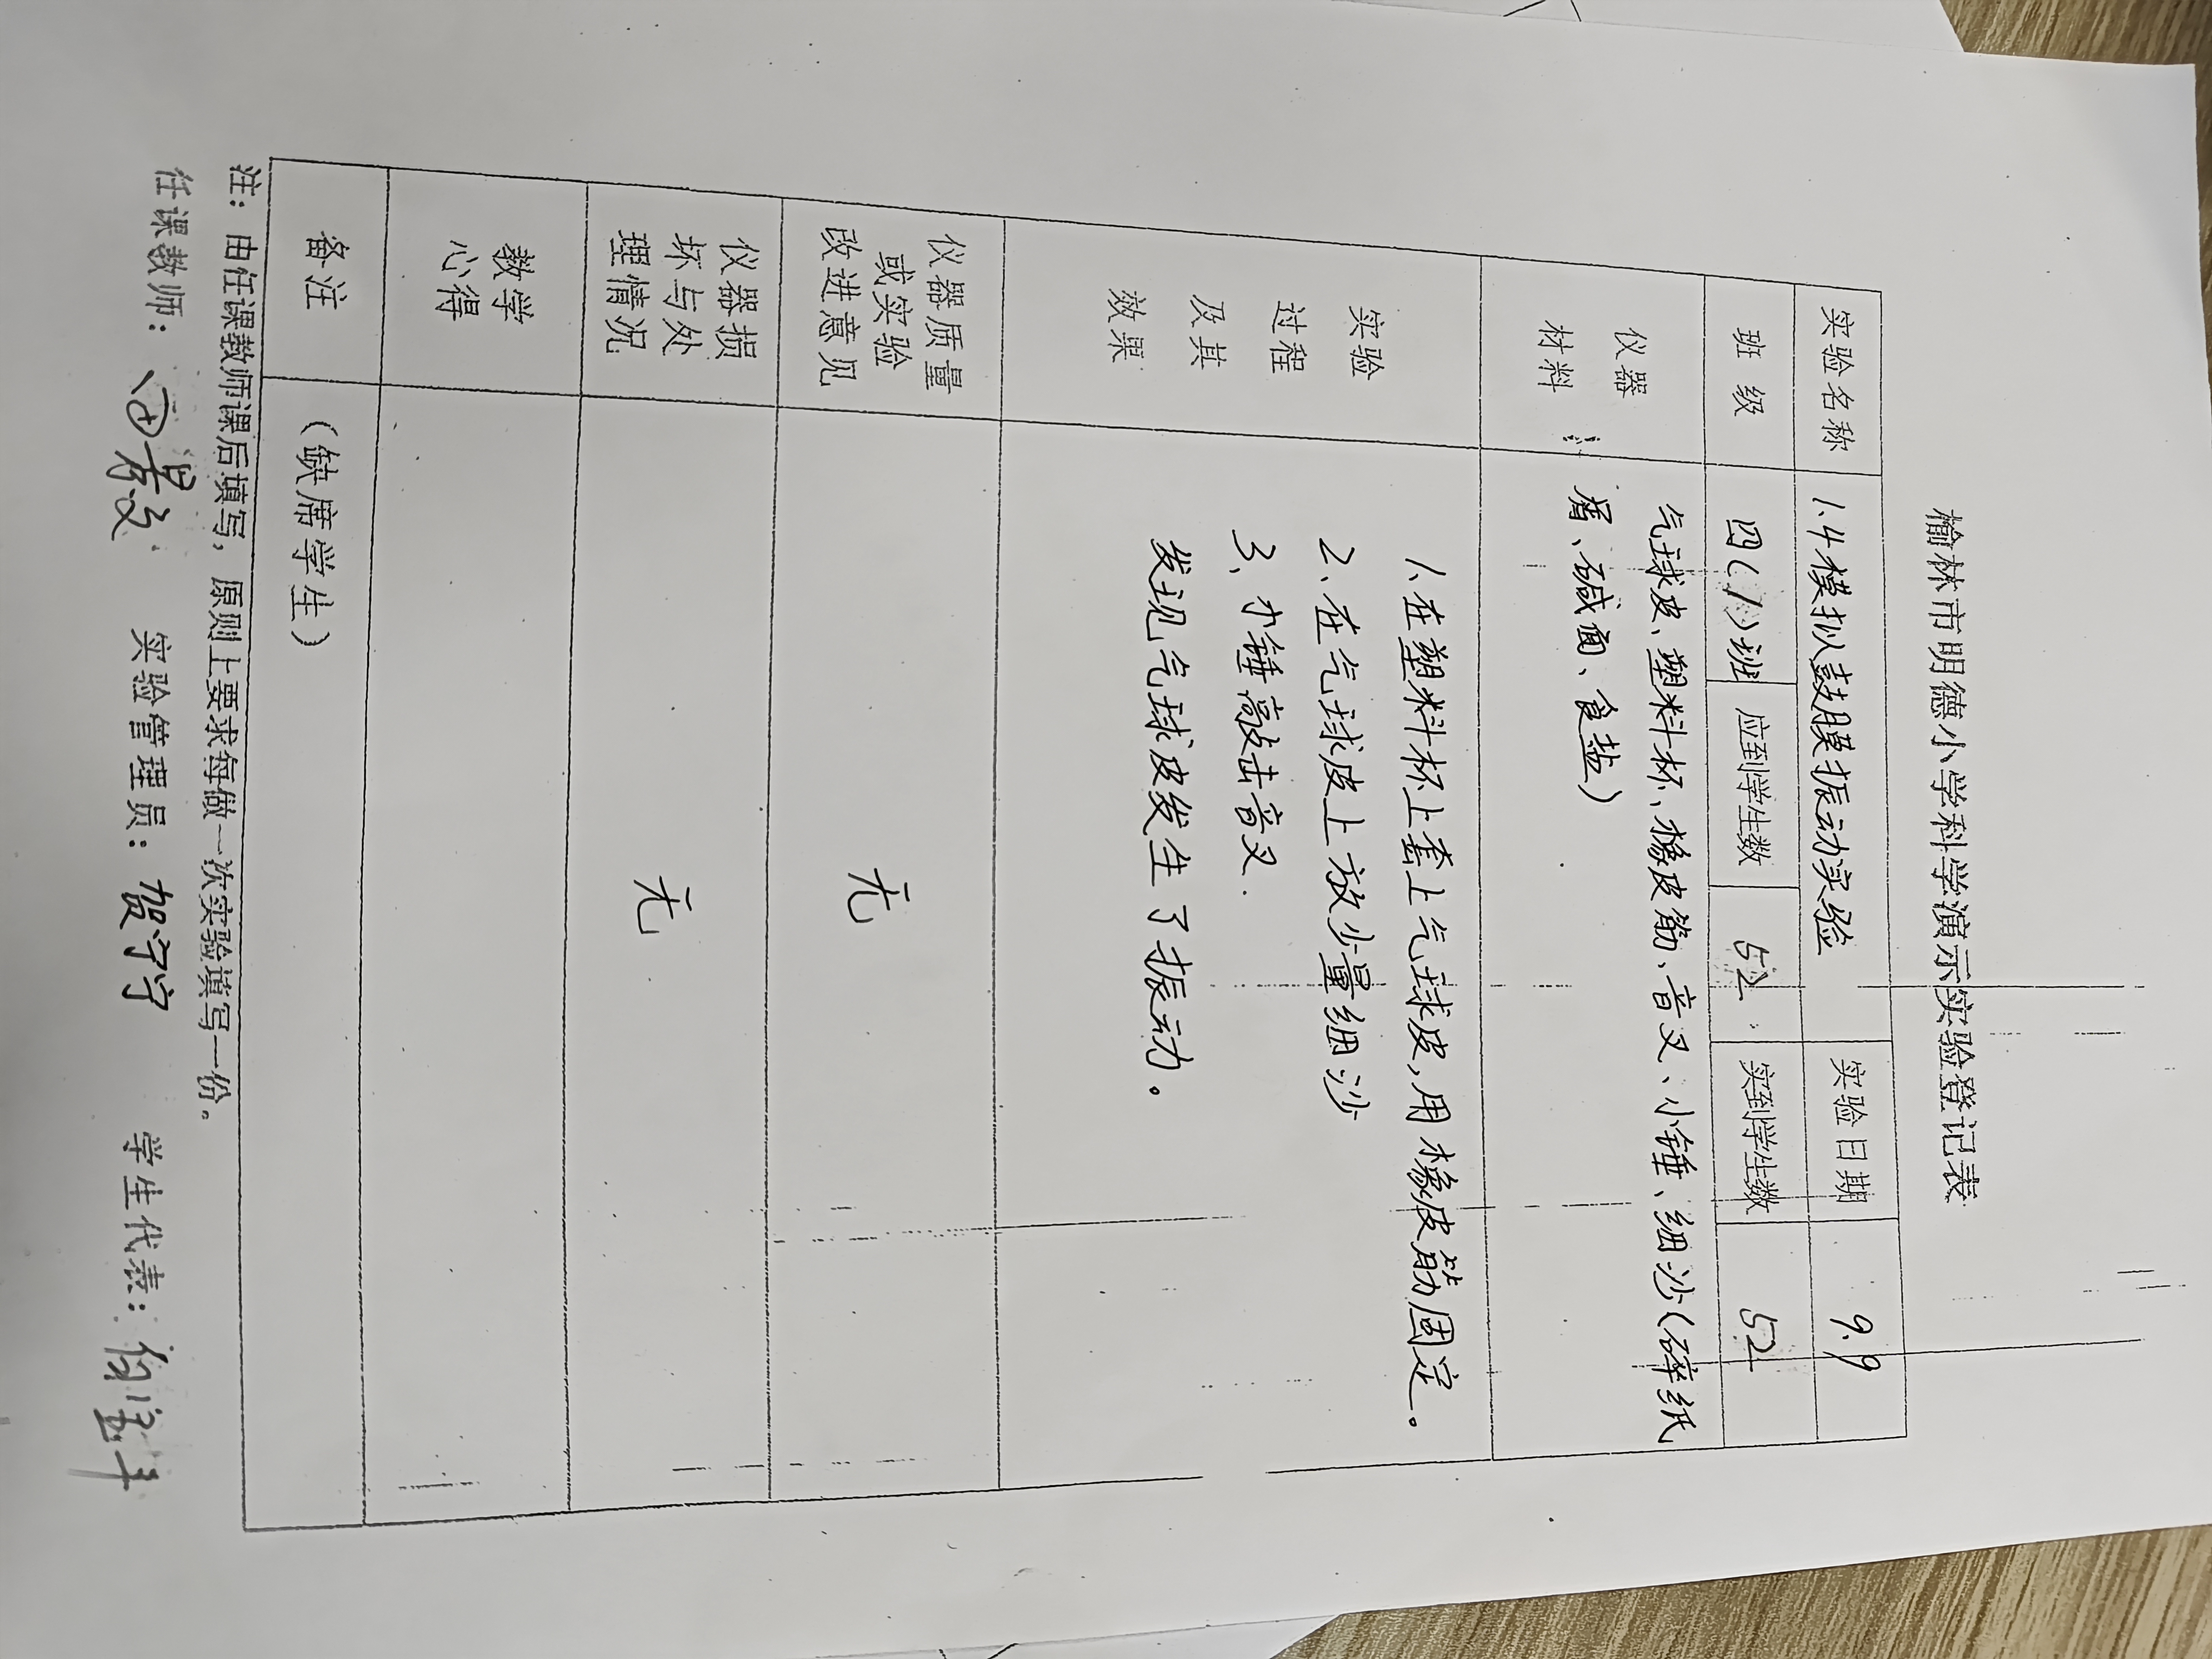 榆林市明德小学科学演示实验登记表
实验名称 1.4模拟鼓膜振动实验 实验日期 9.9
班 级 四(1)班 应到学生数 52 实到学生数 52
仪器
材料
气球皮、塑料杯、橡皮筋、音叉、小锤、细沙(碎纸
屑、碱面、食盐)
实验
过程
及其
效果
1、在塑料杯上套上气球皮,用橡皮筋固定。
2、在气球皮上放少量细沙
3、小锤敲击音叉.
发现气球皮发生了振动。
仪器质量
或实验
改进意见
无
仪器损
坏与处
理情况
无
教学
心得
备注
(缺席学生)
注:由任课教师课后填写,原则上要求每做一次实验填写一份。
任课教师: 实验管理员:贺宁宁 学生代表: